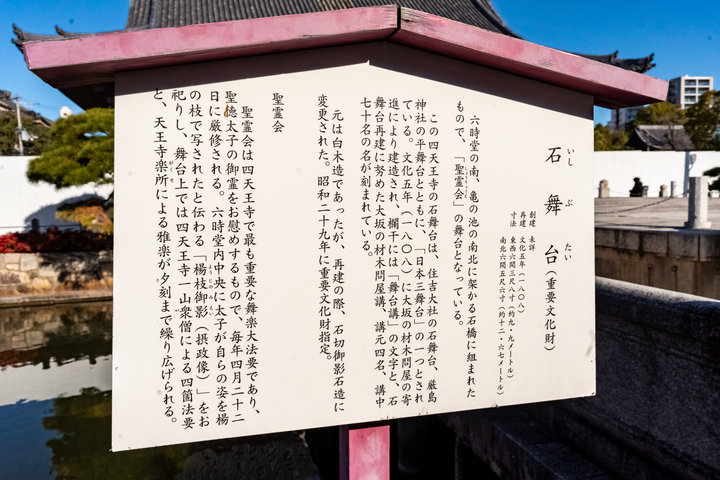 石舞台(重要文化財)
いしぶたい
創建 未詳
再建 文化五年(一八〇八)
寸法 東西六間三尺八寸(約九・九メートル)
南北六間五尺六寸(約十二・六七メートル)
六時堂の南、亀の池の南北に架かる石橋に組まれた
もので、「聖霊会」の舞台となっている。
この四天王寺の石舞台は、住吉大社の石舞台、厳島
神社の平舞台とともに、「日本三舞台」の一つとされ
ている。文化五年(一八〇八)に大坂の材木問屋の寄
進により建造され、欄干には「舞台講」の文字と、石
舞台再建に努めた大坂の材木問屋講、講元四名、講中
七十名の名が刻まれている。
元は白木造であったが、再建の際、石切御影石造に
変更された。昭和二十九年に重要文化財指定。
聖霊会
聖霊会は四天王寺で最も重要な舞楽大法要であり、
聖徳太子の御霊をお慰めするもので、毎年四月二十二
日に厳修される。六時堂内中央に太子が自らの姿を楊
の枝で写されたと伝わる「楊枝御影(摂政像)」をお
祀りし、舞台上では四天王寺一山衆僧による四箇法要
と、天王寺楽所による雅楽が夕刻まで繰り広げられる。